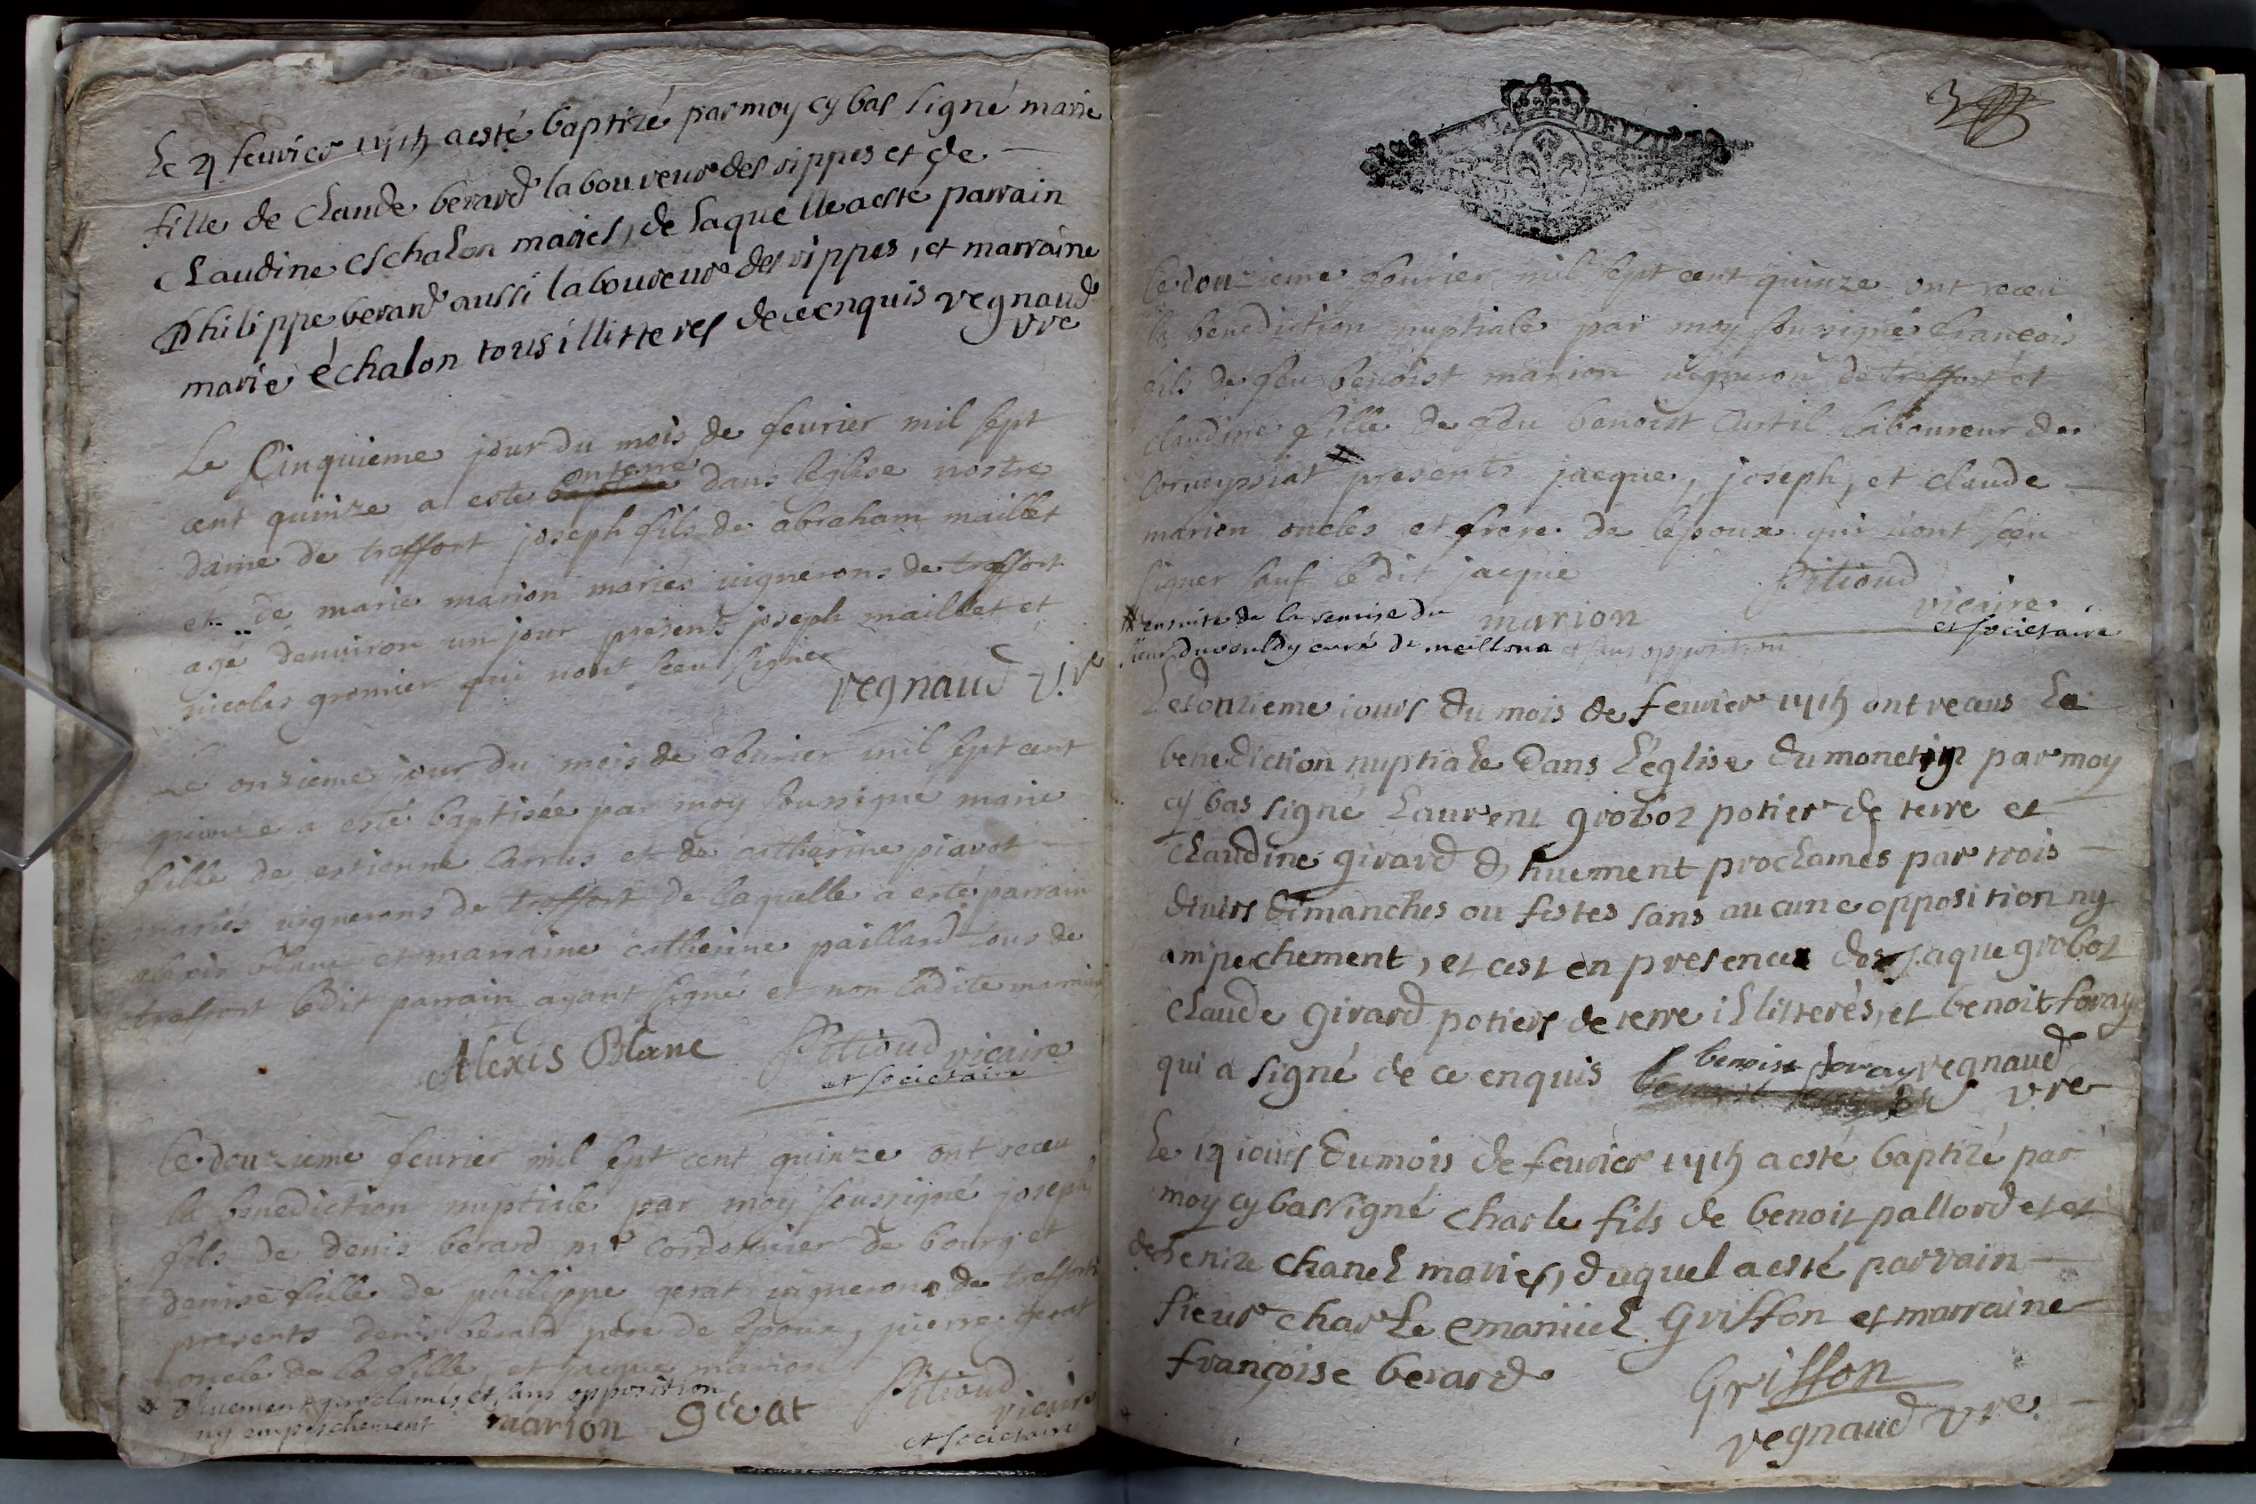 Le 4 feurier 1715 a esté baptizé par moy cy bas signé marie
fille de Claude berard laboureur des rippes et de
Claudine eschalon mariés, de laquelle a esté parrain
Philippe berard aussi laboureur des rippes, et marraine
marie échalon tous illitterés de ce enquis regnaud
vre
Le Cinquieme jour du mois de feurier mil sept
cent quinze a esté enterré dans leglise nostre
dame de treffort joseph fils de abraham maillet
et de marie marion mariés uignerons de treffort
agé denuiron un jour presents joseph maillet et
nicolas gromier qui nont sceu signer
regnaud v.re
Le onzieme jour du mois de feurier mil sept cent
quinze a esté baptisée par moy soussigné marie
fille de estienne et de catherine piavot
mariés uignerons de treffort de laquelle a esté parrain
alexis blanc et marraine catherine paillard tous de
treffort ledit parrain ayant signé et non ladite marraine
Alexis Blanc Pitioud vicaire
et societaire
Le douzieme feurier mil sept cent quinze ont receu
la benediction nuptiale par moy soussigné joseph
fils de denis berard mr cordonnier de bourg et
denise fille de philippe gerat uignerons de treffort
presents denis berard pere de lepoux, pierre gerat
oncle de la fille et jacque marion
* dhuement proclamés et sans opposition
ny empeschement marion gerat Pitioud
vicaire
et societaire
3
Le douzieme feurier mil sept cent quinze ont receu
la benediction nuptiale par moy soussigné francois
fils de feu benoist marion uigneron de treffort et
claudine fille de feu benoist Cutil laboureur de
Corueyssiat presents jacque, joseph, et claude
marion oncles et frere de lepoux qui nont sceu
signer sauf le dit jacque Pitioud
* ensuite de la remise du marion vicaire
sieur curé de meillona et sans opposition et societaire
Le douzieme iours du mois de feurier 1715 ont receus la
benediction nuptiale dans l'église du monetay par moy
cy bas signé Laurent groboz potier de terre et
Claudine girard dhuement proclamés par trois
divers dimanches ou festes sans aucune opposition ny
ampechement, et cest en presence de jaque groboz
Claude girard potiers de terre illitterés, et benoit foray
qui a signé de ce enquis benoist foray regnaud
vre
Le 14 iours du mois de feurier 1715 a esté baptizé par
moy cy bas signé charle fils de benoit pallord et et
de denize chanel mariés, duquel a esté parrain
sieur charle emanüel Griffon et marraine
françoise berard
Griffon
regnaud vre